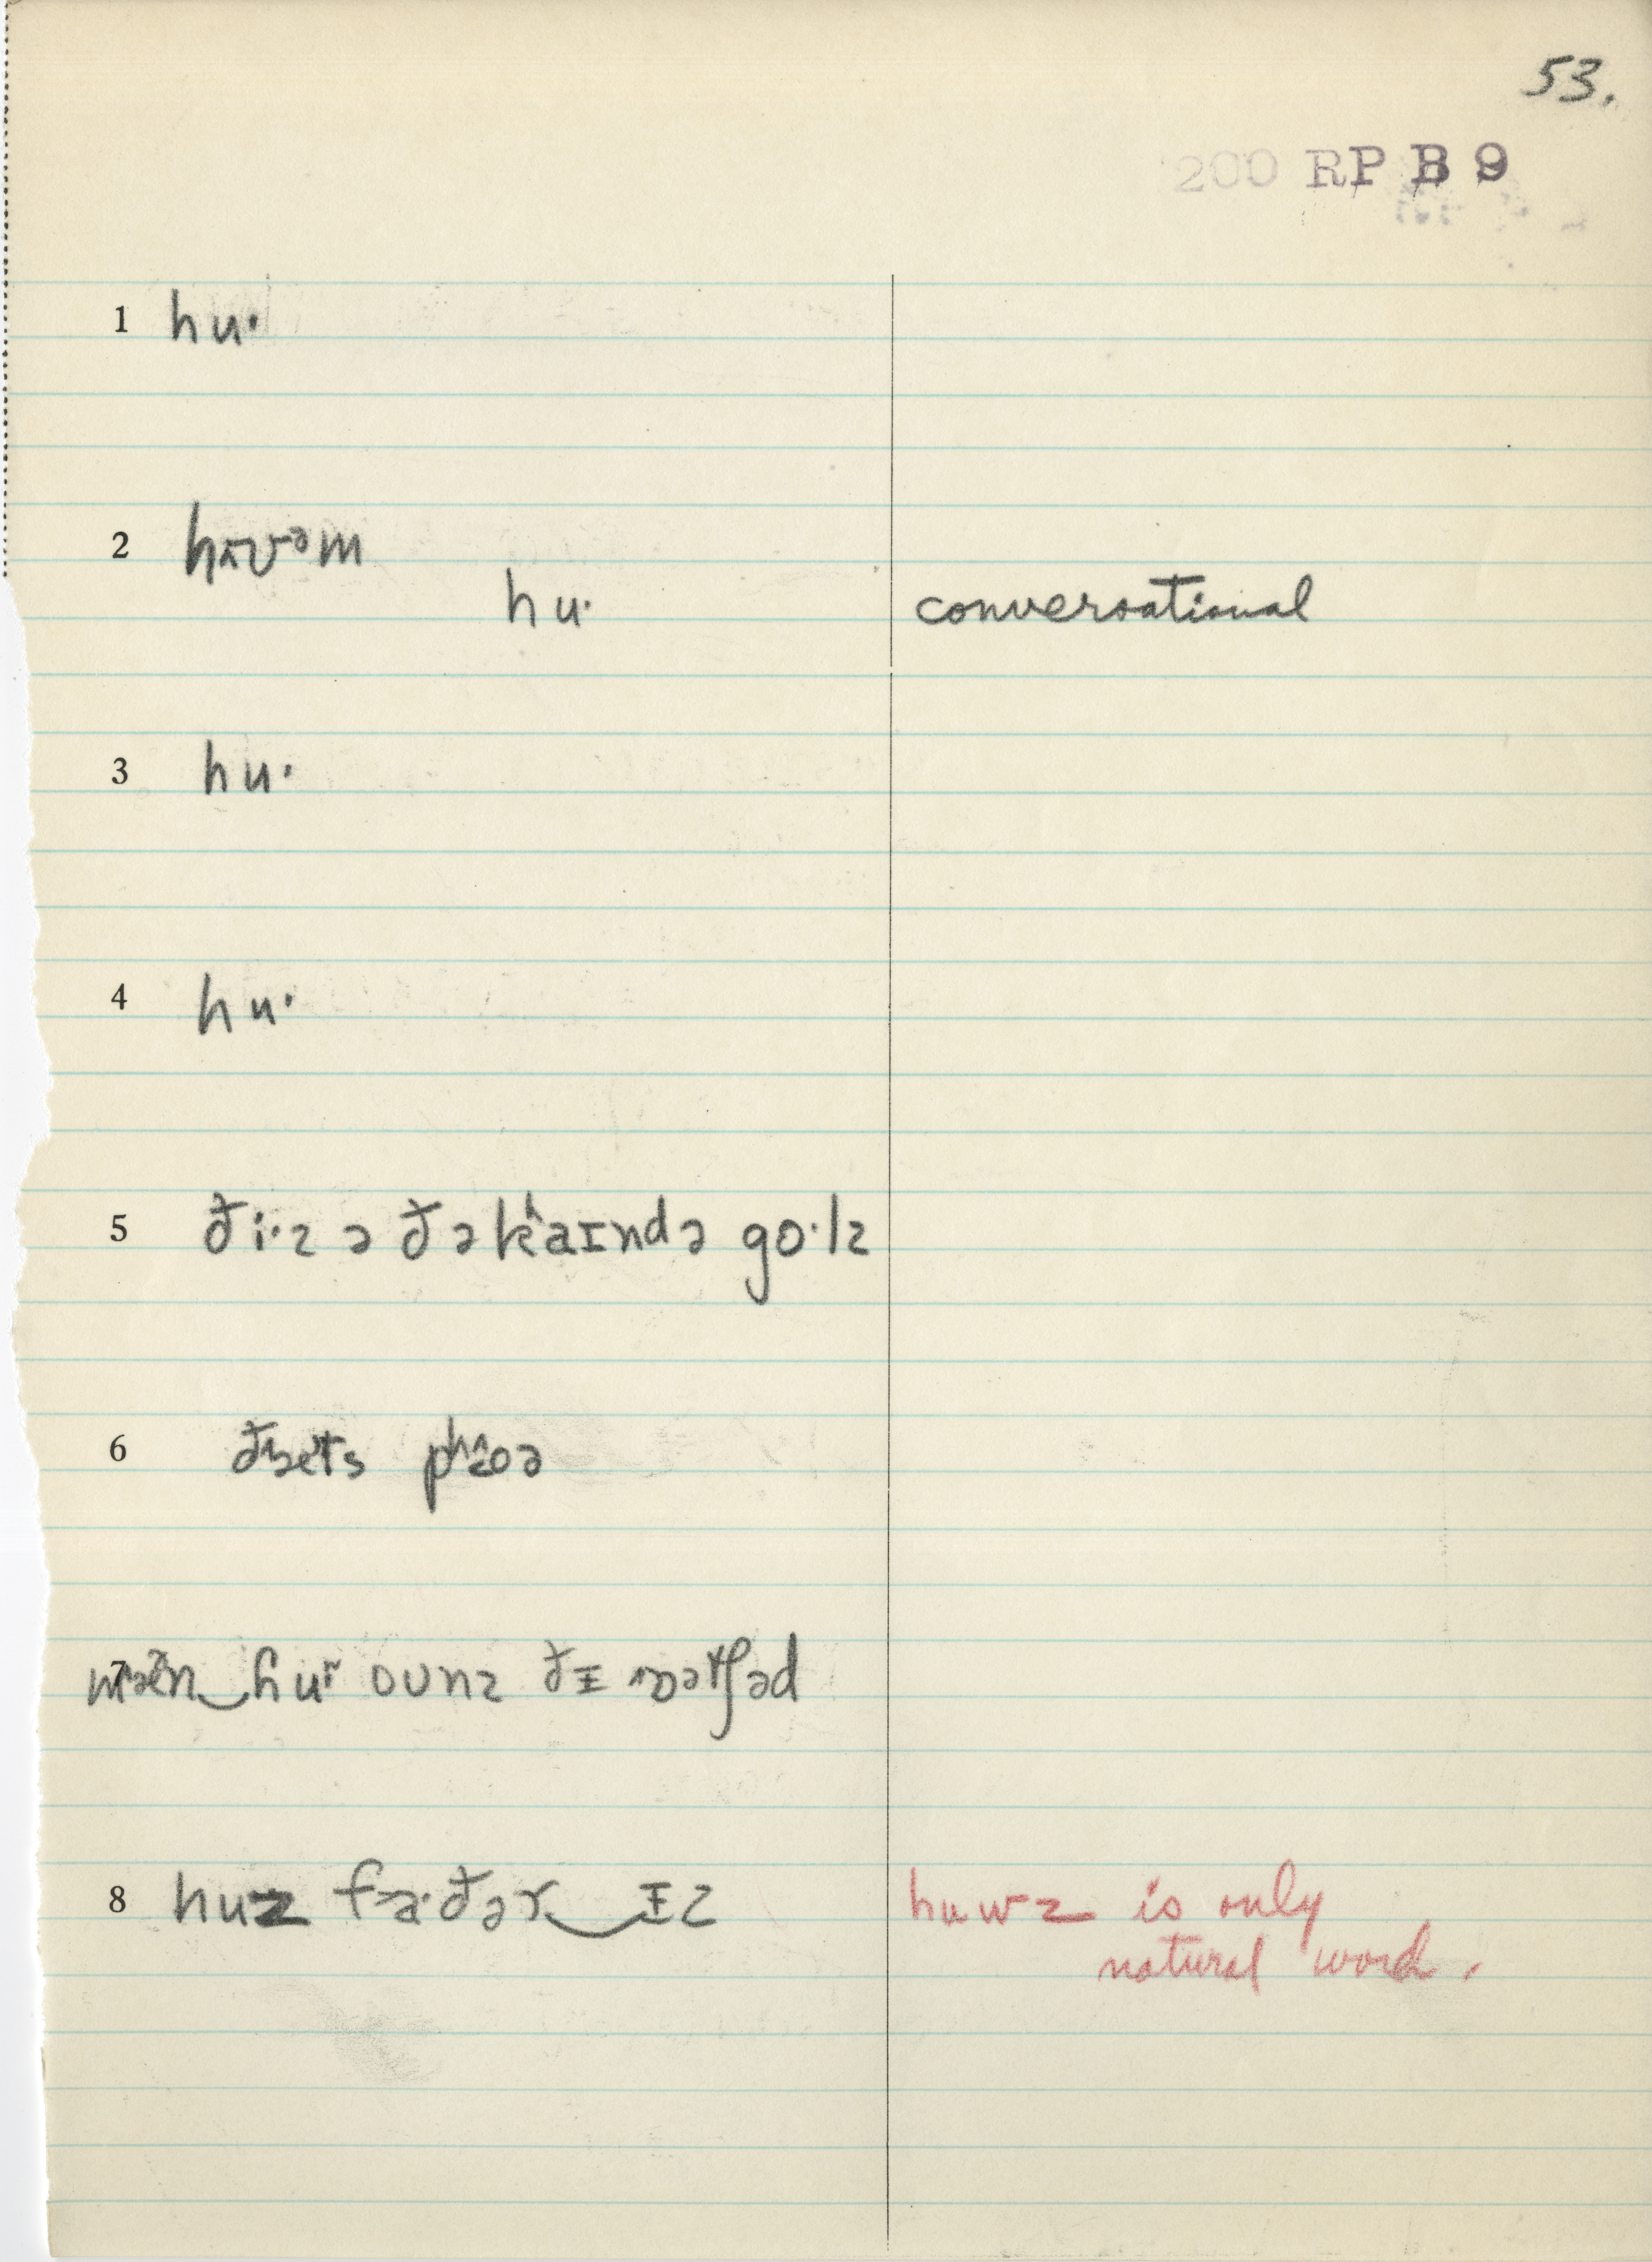 53.
200 RP B 9
1 hu·
2
hu· conversational
3 hu·
4 hu·
5 ði·z ə ðə kʰaɪndə go·lz
6
7 ounz ðɪ
8 huz fa·ðər‿ɪz huwz is only
natural word.